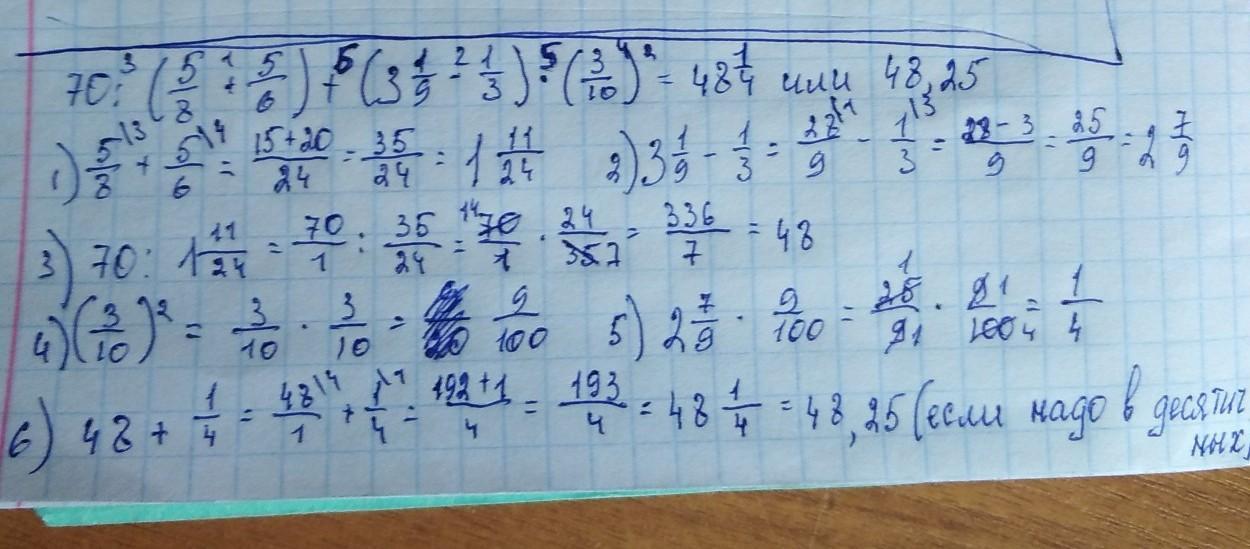 70 :³ (5/8 +¹ 5/6) +⁶ (3 1/9 -² 1/3) ·⁵ (3/10)²⁴ = 48 1/4 или 48,25
1) 5/8\3 + 5/6\4 = 15+20/24 = 35/24 = 1 11/24 2) 3 1/9 - 1/3 = 28/9\1 - 1/3\3 = 28-3/9 = 25/9 = 2 7/9
3) 70 : 1 11/24 = 70/1 : 35/24 = 14 70/1 · 24/35 7 = 336/7 = 48
4) (3/10)² = 3/10 · 3/10 = 9/100 5) 2 7/9 · 9/100 = 1 25/9 1 · 9 1/100 4 = 1/4
6) 48 + 1/4 = 48/1\4 + 1/4\1 = 192+1/4 = 193/4 = 48 1/4 = 48,25 (если надо в десятич
ных)